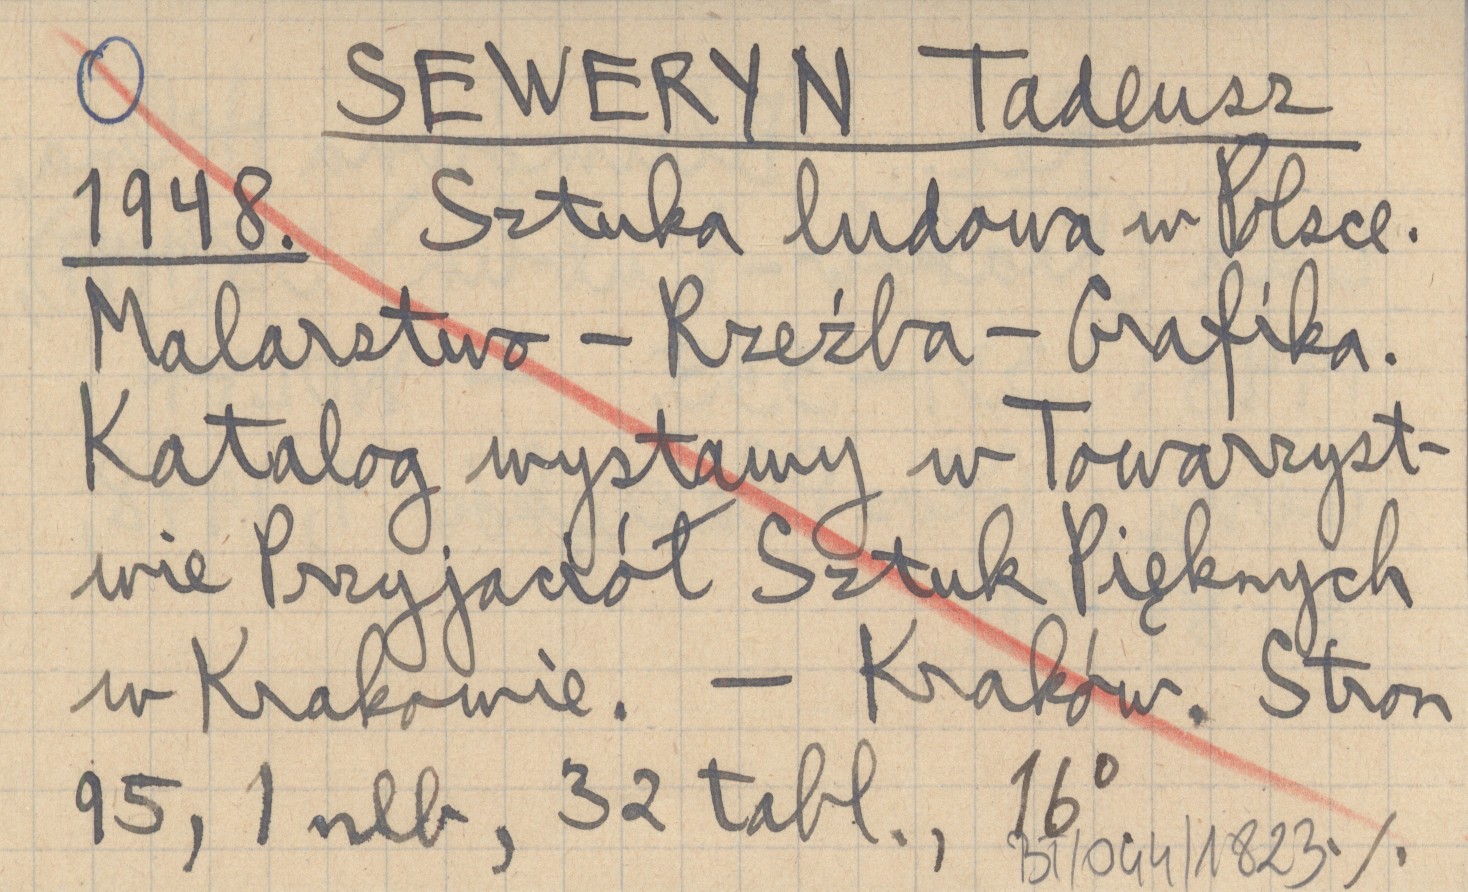 SEWERYN Tadeusz
1948. Sztuka ludowa w Polsce.
Malarstwo – Rzeźba – Grafika.
Katalog wystawy w Towarzyst-
wie Przyjaciół Sztuk Pięknych
w Krakowie. — Kraków. Stron
95, 1 nlb, 32 tabl., 16°
BI/044/1823./.